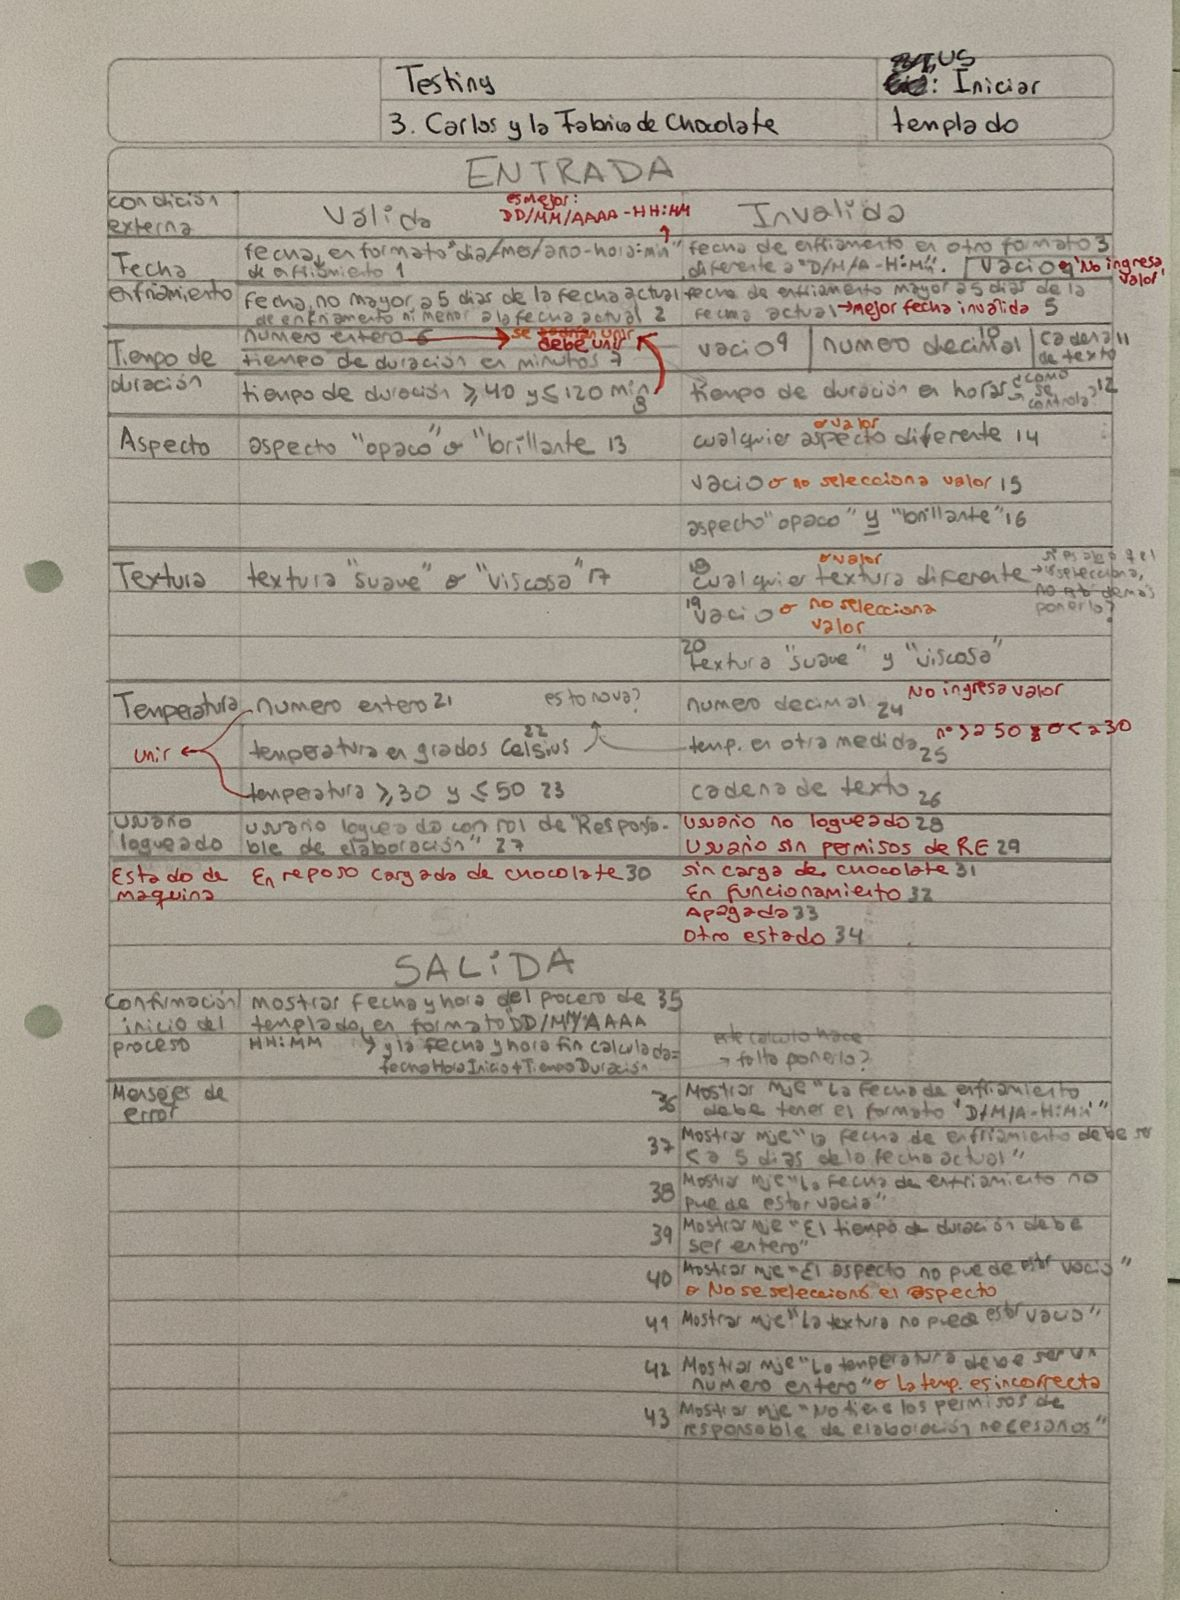 Testing
US
: Iniciar
3. Carlos y la Fabrica de Chocolate
templado
ENTRADA
condición externa
Válida
es mejor:
DD/MM/AAAA - HH:MM
Invalida
Fecha enfriamiento
fecha, en formato "dia/mes/ano-hora:min"
de enfriamiento 1
fecha de enfriamiento en otro formato 3
diferente a "D/M/A - H:Min".
Vacio o "No ingresa valor"
Fecha, no mayor a 5 dias de la fecha actual
de enfriamiento ni menor a la fecha actual 2
fecha de enfriamiento mayor a 5 dias de la
fecha actual → Mejor fecha invalida 5
Tiempo de duración
numero entero 6
se podrian unir
debe unir
tiempo de duración en minutos 7
vacio 9
numero decimal 10
cadena 11
de texto
tiempo de duración ≥ 40 y ≤ 120 min 8
tiempo de duración en horas 12
→ ¿como se controla?
Aspecto
aspecto "opaco" o "brillante 13
o valor
cualquier aspecto diferente 14
vacio o no selecciona valor 15
aspecto "opaco" y "brillante" 16
Textura
textura "suave" o "viscosa" 17
o valor
18 cualquier textura diferente
→ si es algo q el
selecciona,
no demas
ponerlo?
19 vacio o no selecciona
valor
20 textura "suave" y "viscosa"
Temperatura
numero entero 21
esto no va?
numero decimal 24
No ingresa valor
unir
temperatura en grados Celsius 22
temp. en otra medida 25
n° > a 50 y o < a 30
temperatura ≥ 30 y ≤ 50 23
cadena de texto 26
usuario logueado
usuario logueado con rol de "Responsa-
ble de elaboración" 27
Usuario no logueado 28
Usuario sin permisos de RE 29
Estado de maquina
En reposo cargada de chocolate 30
sin carga de chocolate 31
En funcionamiento 32
Apagada 33
Otro estado 34
SALIDA
Confirmación inicio del proceso
mostrar fecha y hora del proceso de 35
templado, en formato DD/MM/AAAA
HH:MM
y la fecha y hora fin calculada=
fechaHoraInicio + TiempoDuración
este calculo hace
→ falta ponerlo?
Mensajes de error
36 Mostrar mje "La fecha de enfriamiento
debe tener el formato "D/M/A-H:Min"
37 Mostrar mje "la fecha de enfriamiento debe ser
< a 5 dias de la fecha actual"
38 Mostrar mje "La fecha de enfriamiento no
puede estar vacia"
39 Mostrar mje "El tiempo de duración debe
ser entero"
40 Mostrar mje "El aspecto no puede estar vacio"
o No se seleccionó el aspecto
41 Mostrar mje "La textura no puede estar vacia"
42 Mostrar mje "La temperatura debe ser un
numero entero" o La temp. es incorrecta
43 Mostrar mje "No tiene los permisos de
responsable de elaboración necesarios"